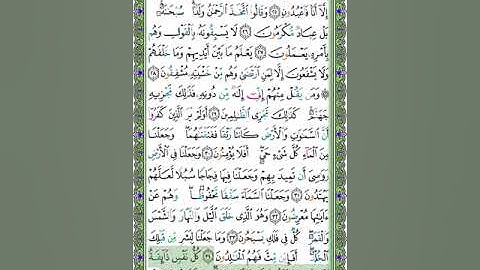 إِلَّا أَنَا فَاعْبُدُونِ ٢٥ وَقَالُوا اتَّخَذَ الرَّحْمَٰنُ وَلَدًا سُبْحَانَهُ
بَلْ عِبَادٌ مُّكْرَمُونَ ٢٦ لَا يَسْبِقُونَهُ بِالْقَوْلِ وَهُم
بِأَمْرِهِ يَعْمَلُونَ ٢٧ يَعْلَمُ مَا بَيْنَ أَيْدِيهِمْ وَمَا خَلْفَهُمْ
وَلَا يَشْفَعُونَ إِلَّا لِمَنِ ارْتَضَىٰ وَهُم مِّنْ خَشْيَتِهِ مُشْفِقُونَ ٢٨
۞ وَمَن يَقُلْ مِنْهُمْ إِنِّي إِلَٰهٌ مِّن دُونِهِ فَذَٰلِكَ نَجْزِيهِ
جَهَنَّمَ كَذَٰلِكَ نَجْزِي الظَّالِمِينَ ٢٩ أَوَلَمْ يَرَ الَّذِينَ كَفَرُوا
أَنَّ السَّمَاوَاتِ وَالْأَرْضَ كَانَتَا رَتْقًا فَفَتَقْنَاهُمَا وَجَعَلْنَا
مِنَ الْمَاءِ كُلَّ شَيْءٍ حَيٍّ أَفَلَا يُؤْمِنُونَ ٣٠ وَجَعَلْنَا فِي الْأَرْضِ
رَوَاسِيَ أَن تَمِيدَ بِهِمْ وَجَعَلْنَا فِيهَا فِجَاجًا سُبُلًا لَّعَلَّهُمْ
يَهْتَدُونَ ٣١ وَجَعَلْنَا السَّمَاءَ سَقْفًا مَّحْفُوظًا وَهُمْ عَنْ
آيَاتِهَا مُعْرِضُونَ ٣٢ وَهُوَ الَّذِي خَلَقَ اللَّيْلَ وَالنَّهَارَ وَالشَّمْسَ
وَالْقَمَرَ كُلٌّ فِي فَلَكٍ يَسْبَحُونَ ٣٣ وَمَا جَعَلْنَا لِبَشَرٍ مِّن قَبْلِكَ
الْخُلْدَ أَفَإِن مِّتَّ فَهُمُ الْخَالِدُونَ ٣٤ كُلُّ نَفْسٍ ذَائِقَةُ